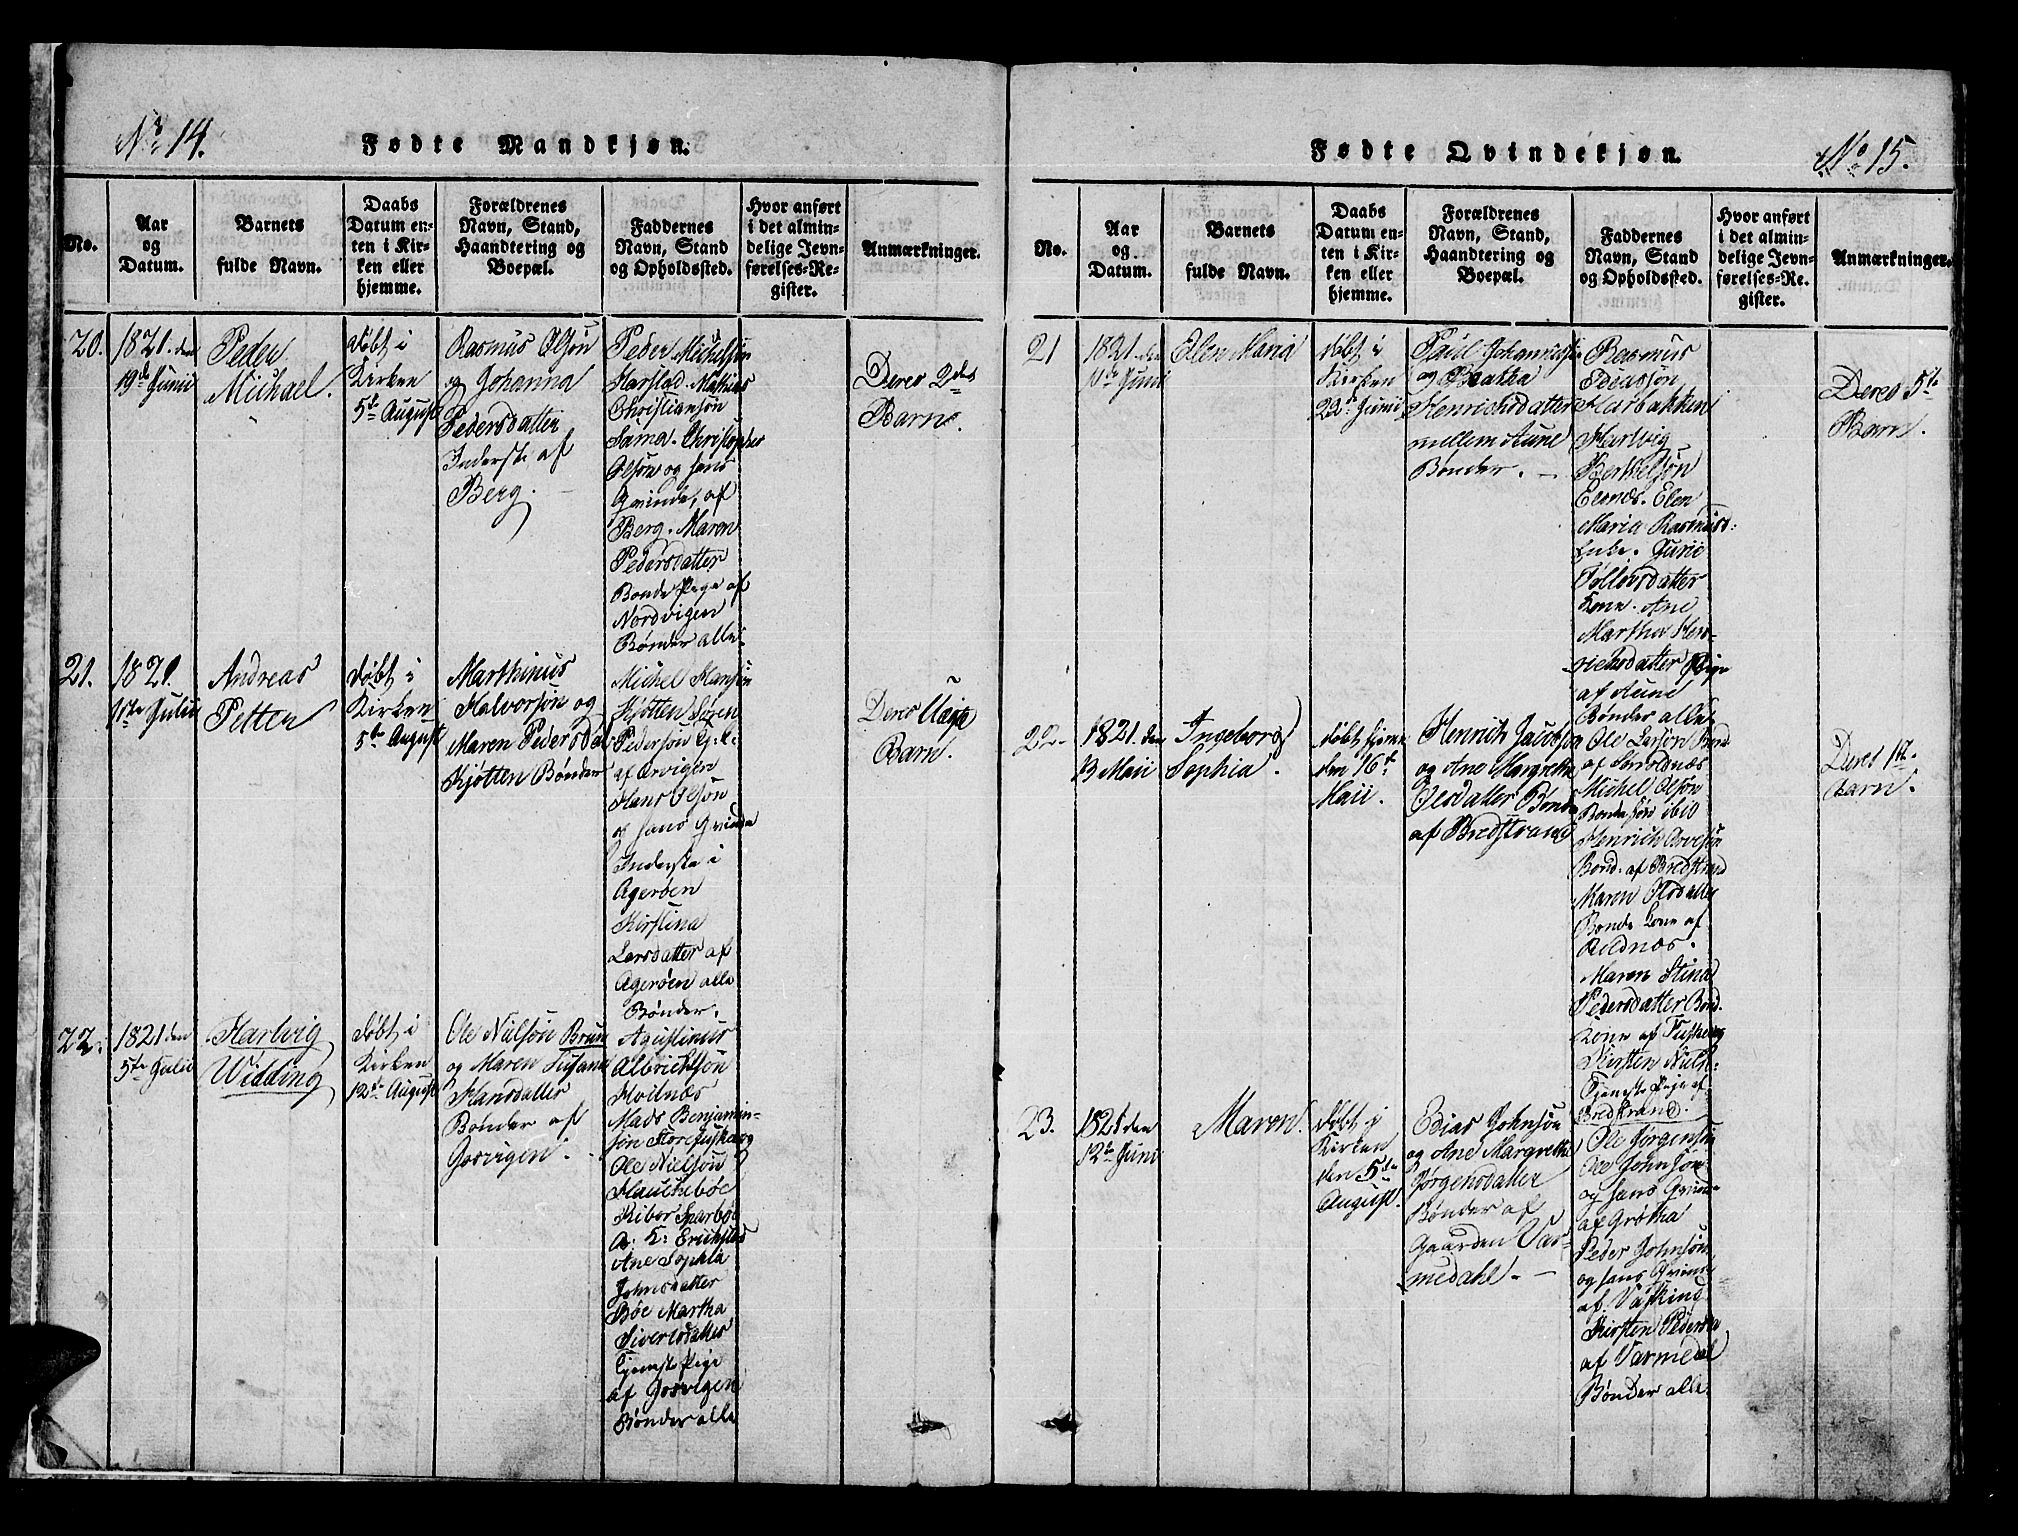 No 14.
Fødte Mandkjøn.
No.
Aar
og
Datum.
Barnets
fulde Navn.
Daabs
Datum en-
ten i Kir-
ken eller
hjemme.
Forældrenes
Navn, Stand,
Haandtering og
Boepæl.
Faddernes
Navn, Stand
og Opholdssted.
Hvor anført
i det almin-
delige Jevn-
førelses-Re-
gister.
Anmærkninger.
20.
1821. den
19de Junii
Peder
Michael.
døbt i
Kirken
5te August
Rasmus Olsøn
og Johanna
Pedersdatter
Inderste af
Berg.
Peder Michelsøn
Harstad. Mathias
Christiansøn
Christopher
Olsøn og hans
Qvinde, af
Berg. Maren
Pedersdatter
Bonde Pige af
Nordvigen
Bønder alle.
Deres 2det
Barn.
21.
1821.
11te Julii
Andreas
Petter
døbt i
Kirken
5te August
Marthinus
Halvorsøn og
Maren Pedersdat
Kjøtten Bønder
Michel Hansøn
Kjøtten Søren
Pedersøn
af Ørvigen
Hans Olsøn
og hans Qvinde
Inderste i
Agerøen
Kirstina
Larsdatter af
Agerøen alle
Bønder.
Deres Uægte
Barn.
22.
1821 den
5te Julii
Hartvig
Widding
døbt i
Kirken
12te August
Ole Nielsøn Brun
og Maren Susana
Hansdatter
Bønder af
Gosvigen.
Agustinus
Albrichtsøn
Hvilnæs
Mads Benjamin-
søn Store
Ole Nielsøn
Hauchebøe
Riber Sparboe
A. K: Erichstad
Ane Sophia
Johnsdatter
Bøe Martha
Siversdatter
Tjeneste Pige
af Gosvigen
Bønder alle
Fødte Qvindekjøn.
No 15.
No.
Aar
og
Datum.
Barnets
fulde Navn.
Daabs
Datum en-
ten i Kir-
ken eller
hjemme.
Forældrenes
Navn, Stand,
Haandtering og
Boepæl.
Faddernes
Navn, Stand
og Opholdssted.
Hvor anført
i det almin-
delige Jevn-
førelses-Re-
gister.
Anmærkninger.
21
1821. den
11te Junii
Elen Maria
døbt i
Kirken
22de Junii
Paul Johannesøn
og Beatha
Henrichsdatter
mellem Aune
Bønder.
Rasmus
Ediassøn
Harbakken
Hartvig
Berthelsøn
Elsnæs. Elen
Maria Rasmusd:
Enke. Gurie
Tøllevsdatter
Kone. Ane
Martha Hen-
richsdatter Pige
af Aune
Bønder alle
Deres 5te
Barn.
22.
1821. den
13 Maii
Ingeborg
Sophia.
døbt hjemme
den 16de
Maii.
Henrich Jacobsøn
og Ane Margretha
Olsdatter Bønder
af Bredstrand
Ole Larsøn Bond
Michel Olsøn
Bonde Søn ibid
Henrich Arvesøn
Bond. af Bredstrand
Maren Olsdatter
Bonde Kone af
Rildnæs.
Maren Stina
Pedersdatter Bond
Kone af
Kirsten Niels
Tjeneste Pige af
Bredstrand.
Deres 1te
Barn.
23.
1821 den
12te Juni
Maren.
døbt i
Kirken
den 5te
August.
Edias Johnsøn
og Ane Margretha
Jørgensdatter
Bønder af
Gaarden Var-
medahl.
Ole Jørgensøn
Ole Johnsøn
og hans Qvinde
af Grøtha
Peder Johnsøn
og hans Qvinde
af Vasking
Kirsten Peders
af Varmedal
Bønder alle